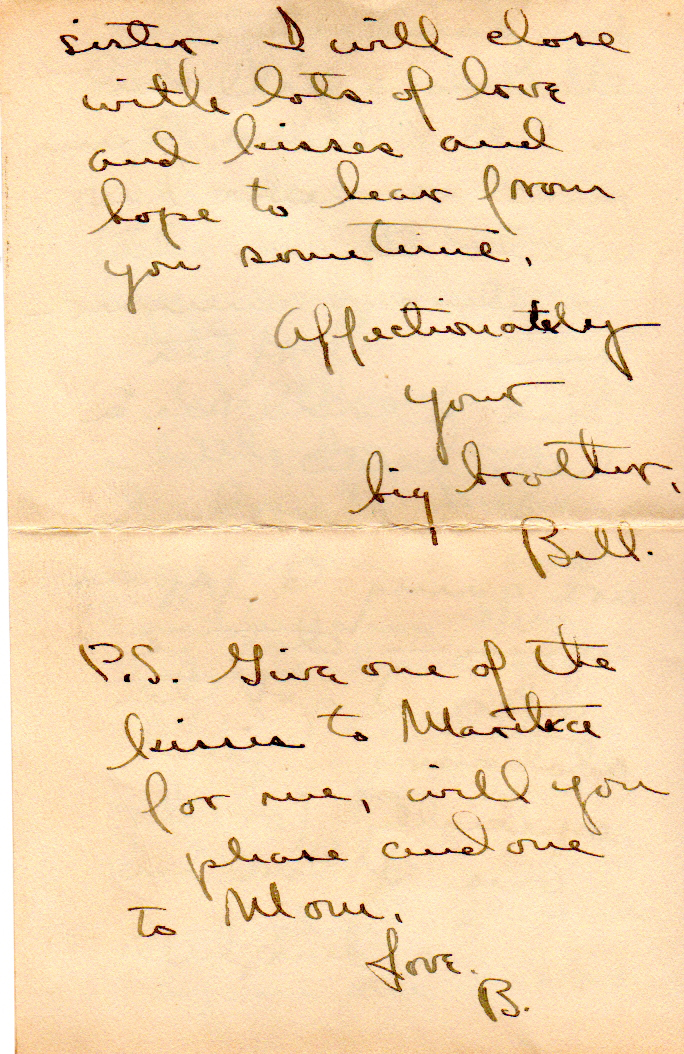 sister I will close
with lots of love
and kisses and
hope to hear from
you sometime.
Affectionately
your
big brother,
Bill.
P.S. Give one of the
kisses to
for me, will you
please and one
to Mom.
Love.
B.